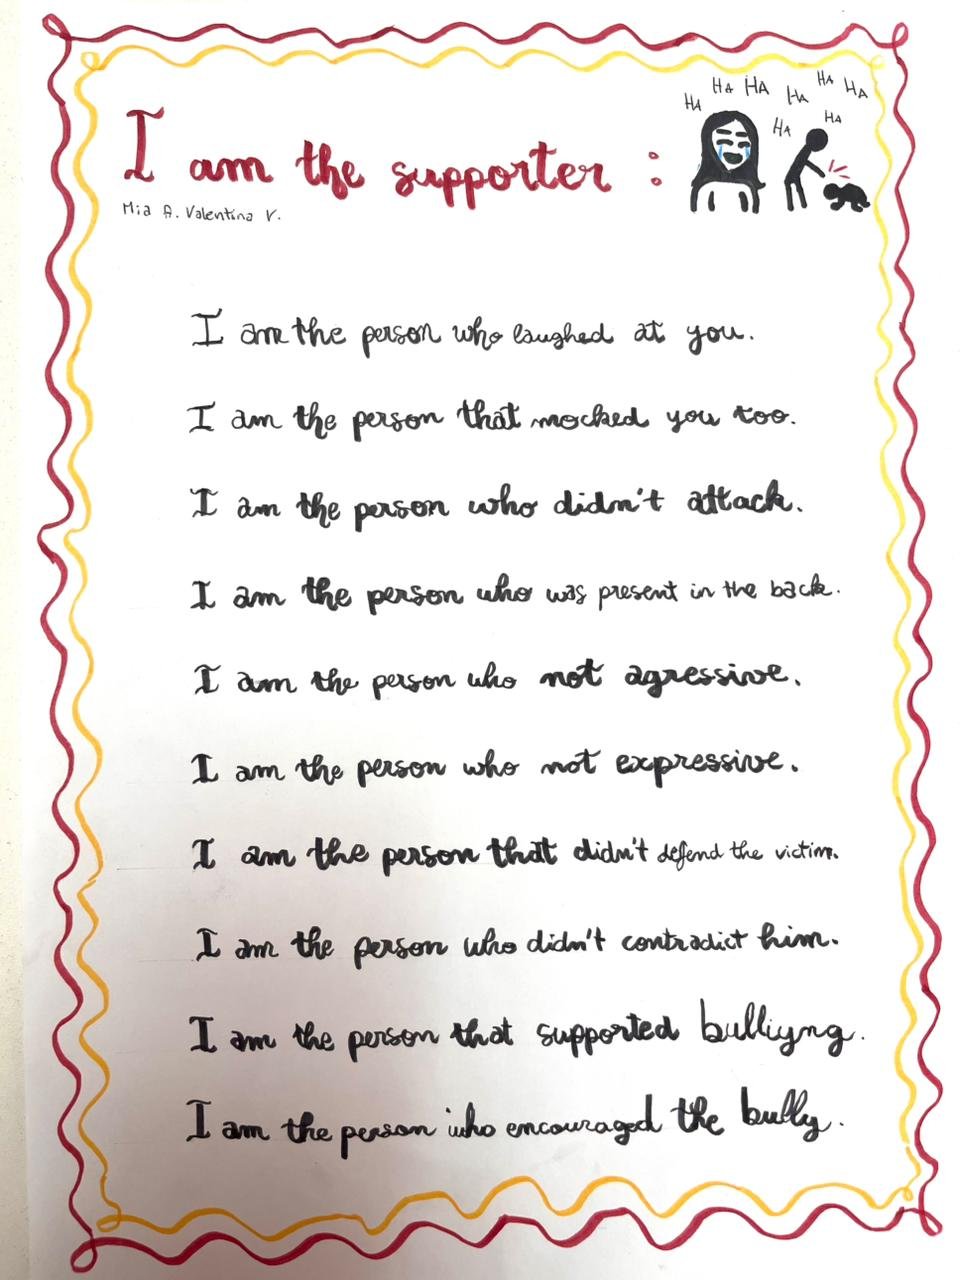 HA HA HA HA HA HA
HA HA
I am the supporter :
Mia A. Valentina V.
I am the person who laughed at you.
I am the person that mocked you too.
I am the person who didn't attack.
I am the person who was present in the back.
I am the person who not agressive.
I am the person who not expressive.
I am the person that didn't defend the victim.
I am the person who didn't contradict him.
I am the person that supported bulliyng.
I am the person who encouraged the bully.